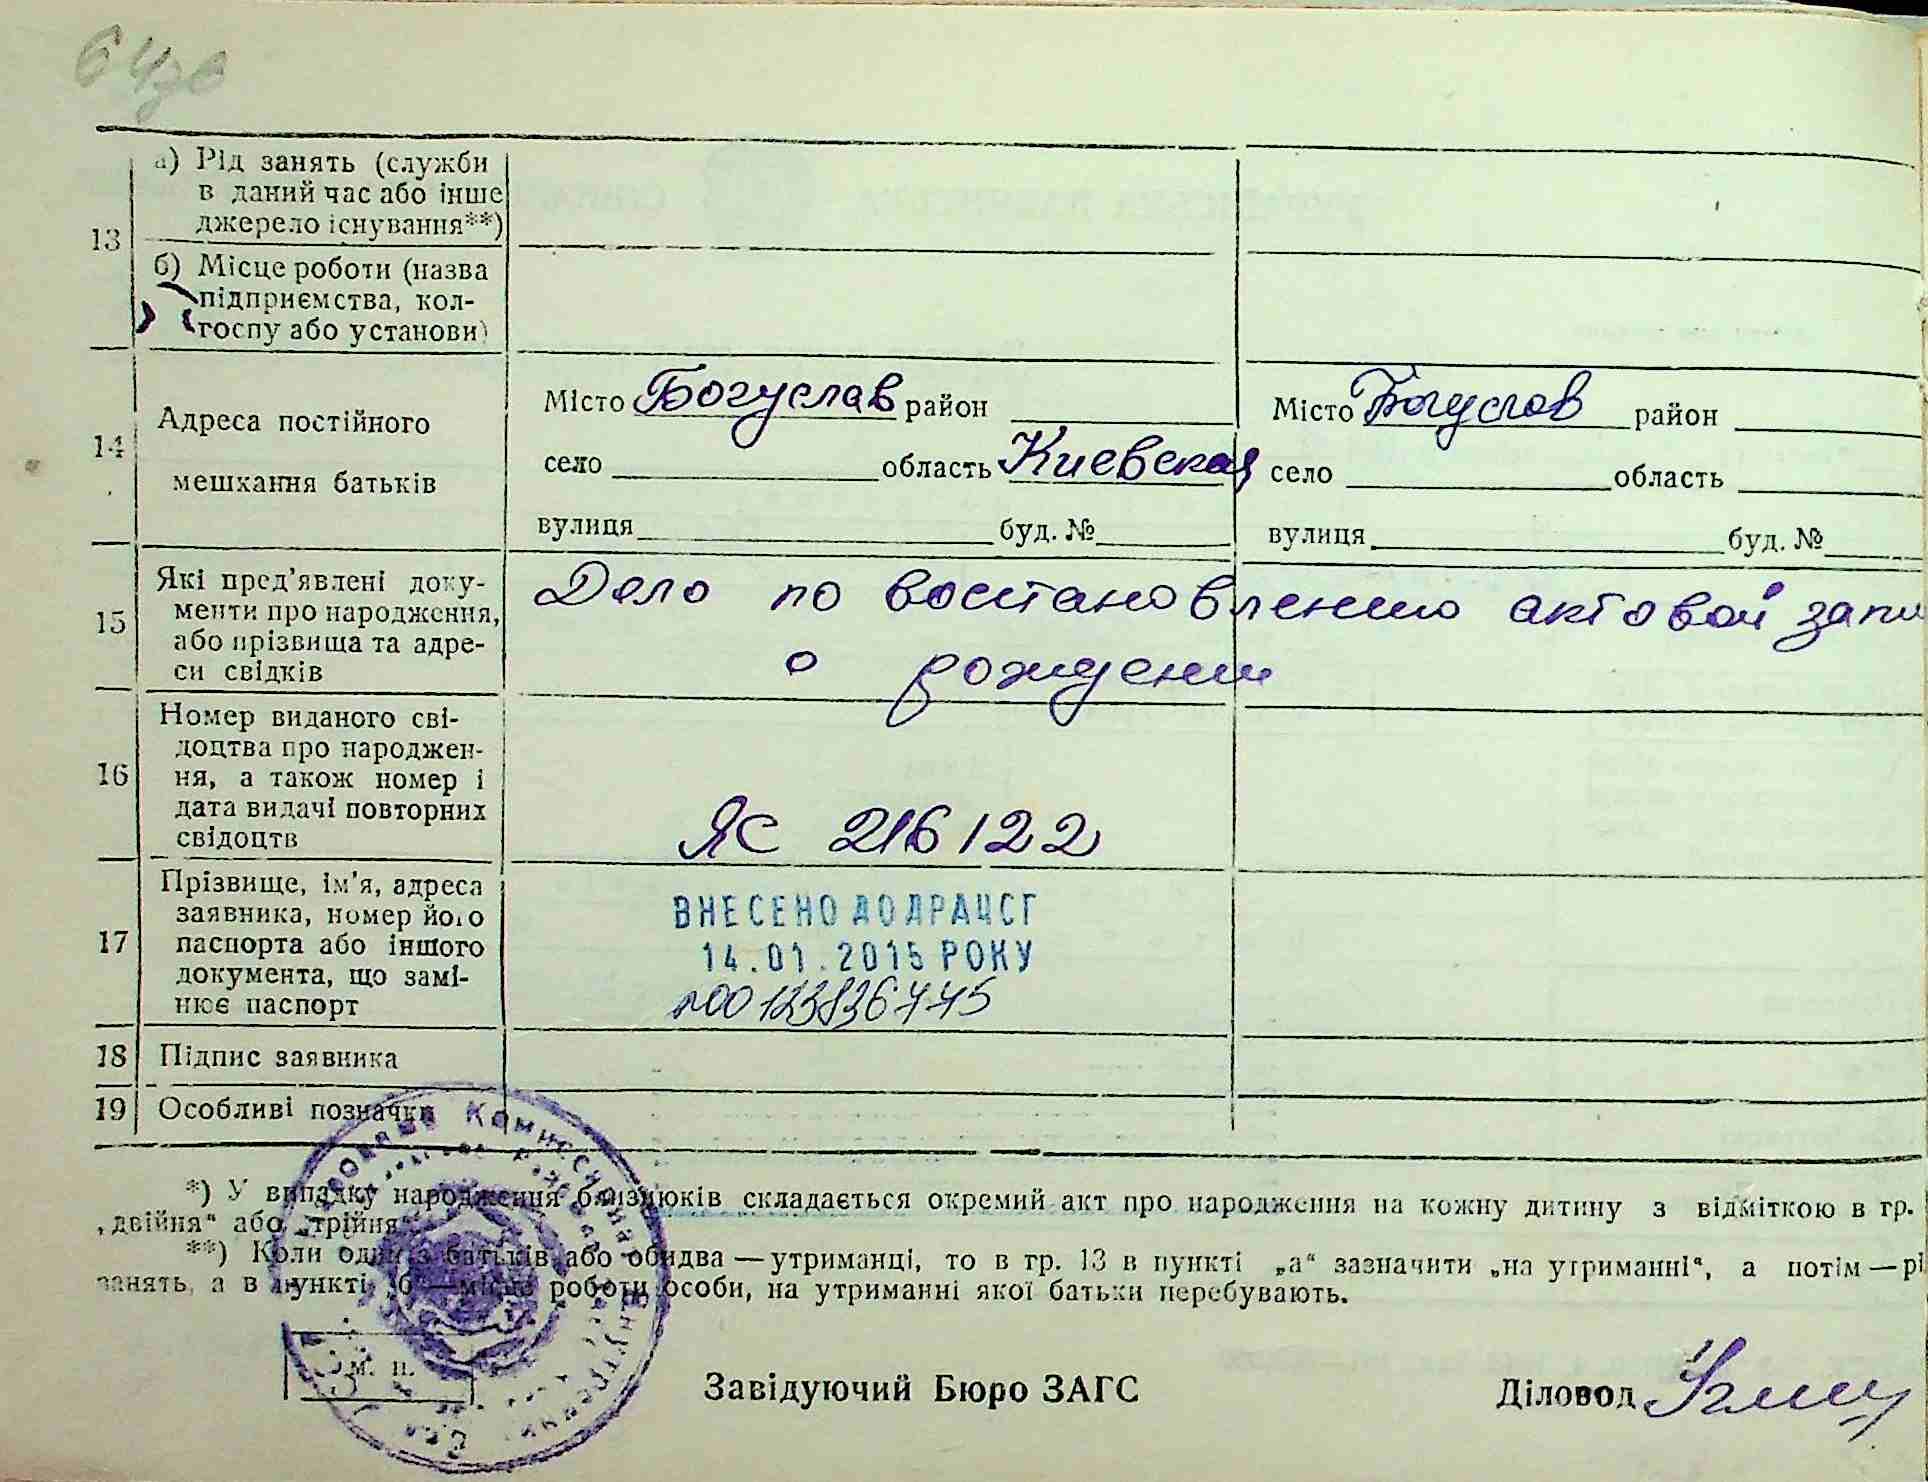 13
а) Рід занять (служби
в даний час або інше
джерело існування**)
б) Місце роботи (назва
підприємства, кол-
госпу або установи)
14
Адреса постійного
мешкання батьків
Місто Богуслав район
село область Киевская
вулиця буд. №
Місто Богуслав район
село область
вулиця буд. №
15
Які пред'явлені доку-
менти про народження,
або прізвища та адре-
си свідків
Дело по восстановлению актовой запи
о рождении
16
Номер виданого сві-
доцтва про народжен-
ня, а також номер і
дата видачі повторних
свідоцтв
ЯС 216122
17
Прізвище, ім'я, адреса
заявника, номер його
паспорта або іншого
документа, що замі-
нює паспорт
ВНЕСЕНО ДО ДРАЦСГ
14.01.2015 РОКУ
18 Підпис заявника
19 Особливі позначки
*) У випадку народження близнюків складається окремий акт про народження на кожну дитину з відміткою в гр.
„двійня“ або „трійня“.
**) Коли один з батьків або обидва — утриманці, то в гр. 13 в пункті „а“ зазначити „на утриманні“, а потім — рі
занять, а в пункті „б“ — місце роботи особи, на утриманні якої батьки перебувають.
м. п.
Завідуючий Бюро ЗАГС
Діловод